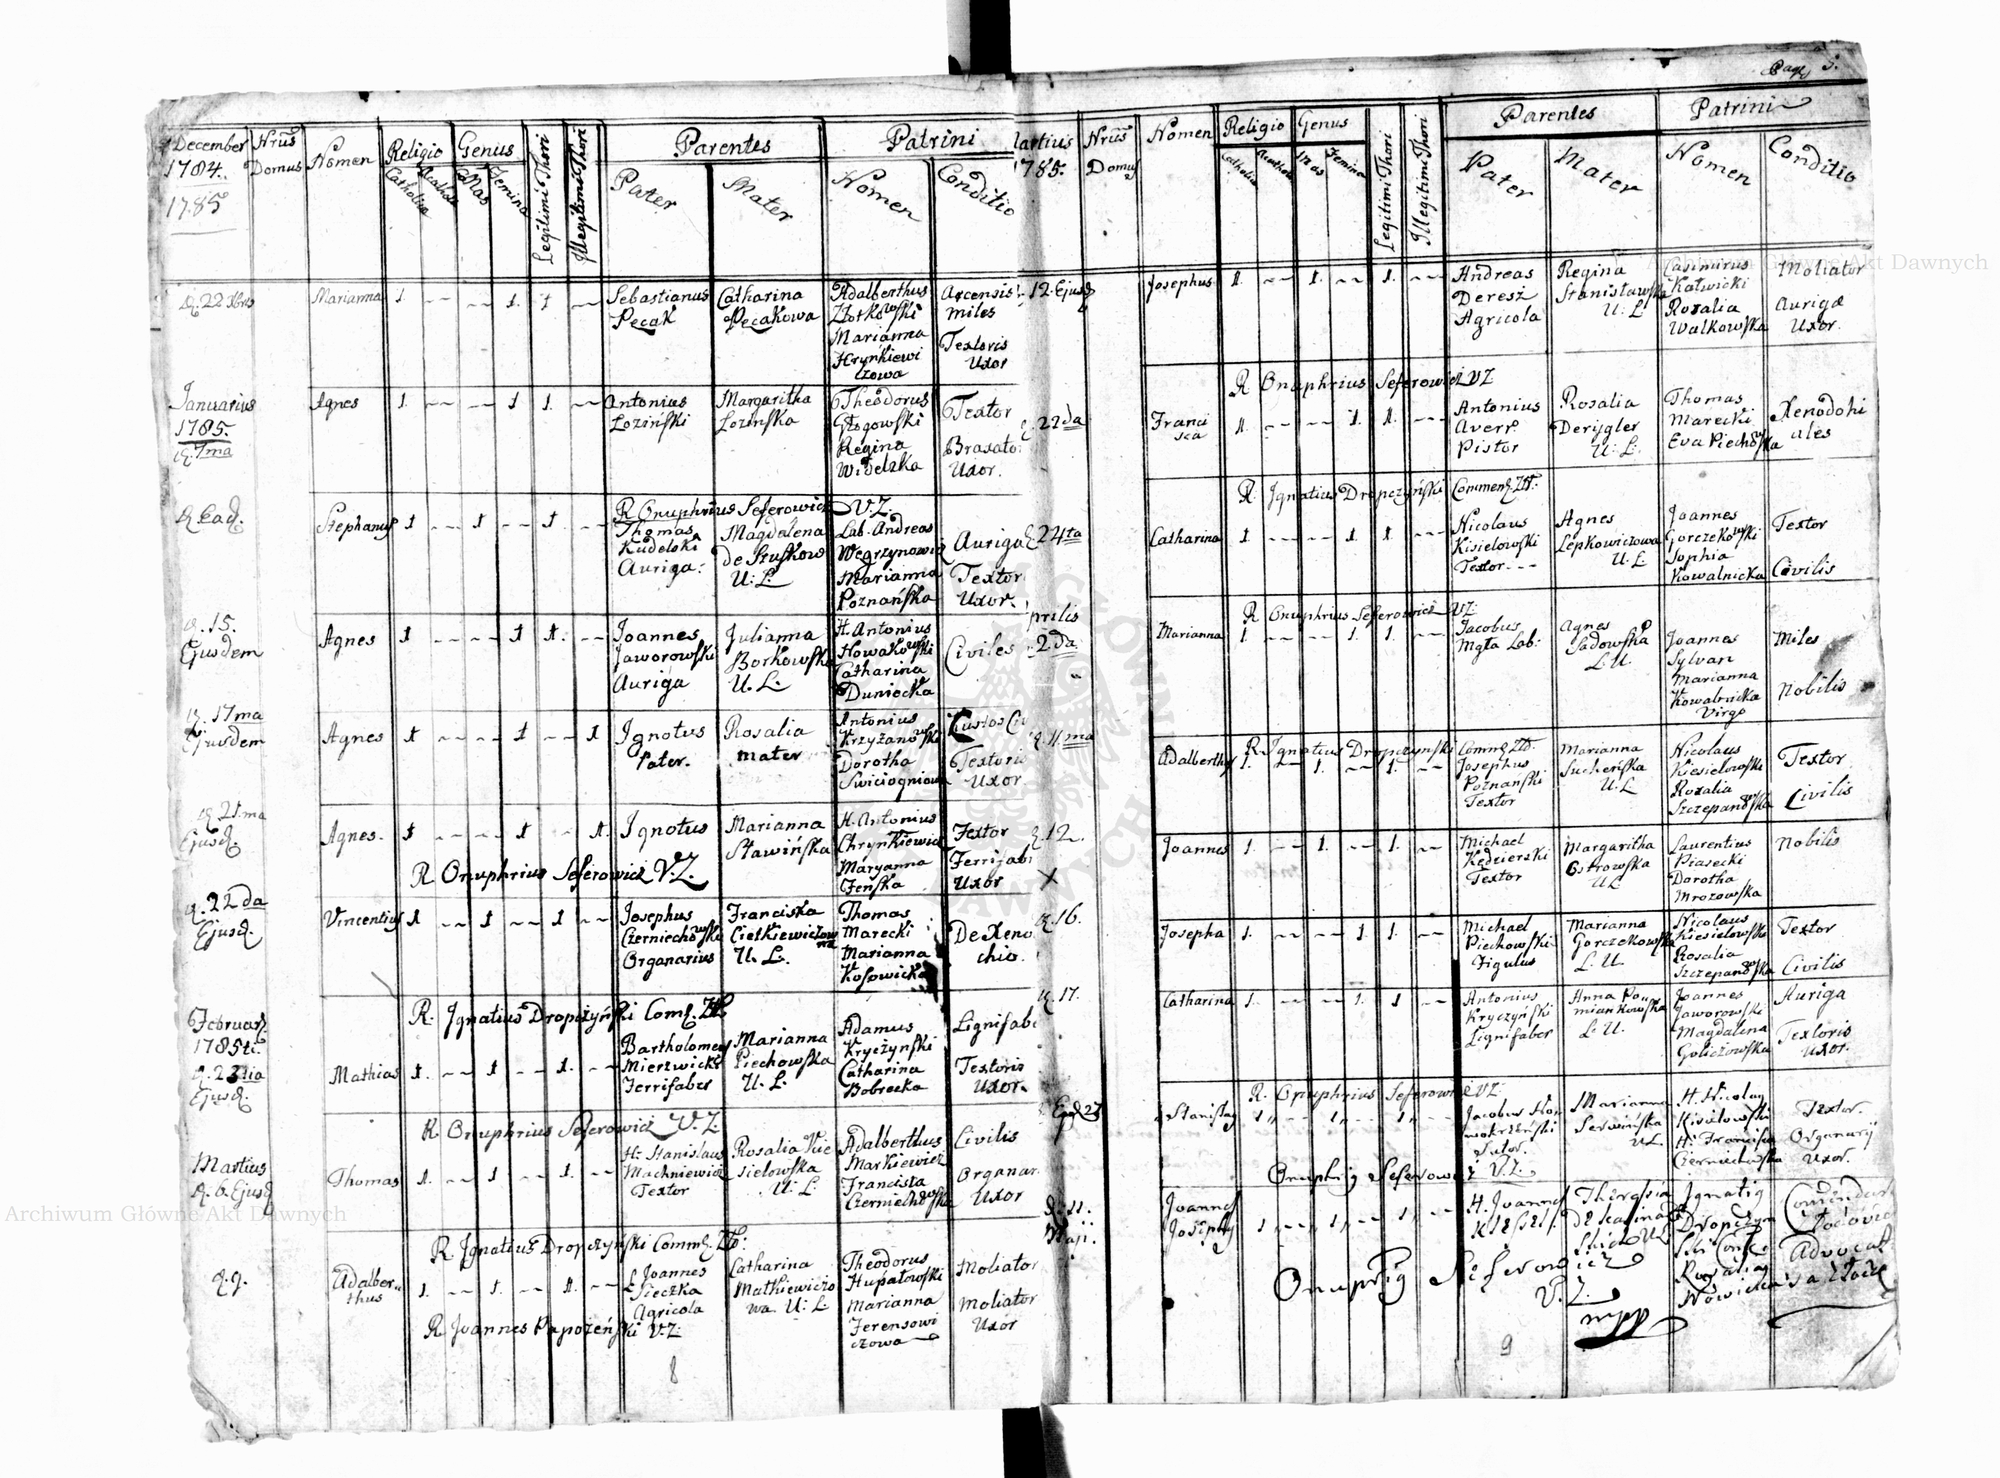 December
1784.
1785
Nrus
Domus
Nomen
Religio
Catholica
Genus
Mas
Femina
Legitimi Thori
Illegitimi Thori
Parentes
Pater
Mater
Patrini
Nomen
Conditio
d. 22 Xbris Marianna 1. 1. 1
Sebastianus
Pecak
Catharina
Pecakowa
Adalberthus
Złotkowski
Marianna
Hrynkiewi
czowa
Arcensis
miles
Textoris
Uxor
Januarius
1785.
d. 7ma
Agnes 1. 1 1.
Antonius
Loziński
Margaritha
Lozińska
Theodorus
Głogowski
Regina
Widelzka
Textor
Uxor.
d. Ead.
Stephanus 1 1 1.
R. Onuphrius Seferowicz V.Z.
Thomas
Kudelski
Auriga.
Magdalena
U: L.
Lab. Andreas
Węgrzynowicz
Marianna
Poznańska
Auriga
Textor
Uxor.
d. 15.
Ejusdem
Agnes 1 1 1.
Joannes
Jaworowski
Auriga
Julianna
Borkowska
U. L.
H. Antonius
Nowakowski
Catharina
Duniecka
Civiles
d. 17ma
Ejusdem
Agnes 1 1 1
Ignotus
Pater.
Rosalia
mater
Antonius
Krzyżanowski
Dorotha
Textoris
Uxor
d. 21.ma
Ejusd.
Agnes. 1 1 1.
Ignotus
Marianna
Stawińska
H. Antonius
Chrynkiewicz
Maryanna
Textor
Ferrifabri
Uxor
R. Onuphrius Seferowicz V.Z.
d. 22da
Ejusd.
Vincentius 1 1 1.
Josephus
Czerniechowski
Organarius
Franciska
U. L.
Thomas
Marecki
Marianna
Kosowicka
De Xeno
chio.
R. Ignatius Dropczyński Com. Zt.
Februar
1785ti.
d. 23tia
Ejusd.
Mathias 1. 1 1.
Bartholomeus
Mierzwicki
Ferrifaber
Marianna
Piechowska
U. L.
Adamus
Kryczynski
Catharina
Bobrecka
Lignifab
Textoris
Uxor.
R. Onuphrius Seferowicz V.Z.
Martius
d. 6. Ejusd
Thomas 1. 1. 1.
H. Stanislaus
Machniewicz
Textor
Rosalia Kie
sielowska
U: L
Adalberthus
Markiewicz
Francista
Czerniechowska
Civilis
Organar.
Uxor
R. Ignatius Dropczyński Comm. Zt:
d. 9.
Adalber
thus 1. 1. 1.
L Joannes
Sieczka
Agricola
Catharina
Matkiewiczo
wa U: L.
Theodorus
Hupałowski
Marianna
Ferensowi
czowa
Moliator
Moliator
Uxor
R. Joannes Papożeński V.Z:
8
Pag 3.
Martius
1785.
Nrus
Domus
Nomen
Religio
Catholica
Genus
Mas
Femina
Legitimi Thori
Illegitimi Thori
Parentes
Pater
Mater
Patrini
Nomen
Conditio
12. Ejusd
Josephus 1. 1. 1.
Andreas
Deresz
Agricola
Regina
Stanisławska
U: L
Casimirus
Katwicki
Rosalia
Walkowska
Moliator
Aurigæ
Uxor.
R. Onuphrius Seferowicz VZ
22da
Franci
sca 1. 1. 1.
Antonius
Averr
Pistor
Rosalia
Derygler
U: L.
Thomas
Marecki
Eva Piechowska
Xenodohi
ales
R. Ignatius Dropczyński Commen. Zt.
24ta
Catharina 1 1 1
Nicolaus
Kisielowski
Textor
Agnes
Lepkowiczowa
U: L
Joannes
Gorczekowski
Sophia
Kowalnicka
Textor
Civilis
R. Onuphrius Seferowicz VZ:
prilis
2da.
Marianna 1. 1. 1.
Jacobus
Mgła Lab:
Agnes
Sadowska
L. U.
Joannes
Sylvan
Marianna
Kowalnicka
Virgo
Miles
Nobilis
R. Ignatius Dropczynski Comm. Zt:
d. 11.ma
Adalberthus 1. 1. 1.
Josephus
Poznański
Textor
Marianna
Sucheńska
U: L
Nicolaus
Kiesielowski
Rozalia
Szczepanowska
Textor
Civilis
d. 12.
X
Joannes 1. 1. 1.
Michael
Kędzierski
Textor
Margaritha
Ostrowska
U L
Laurentius
Piasecki
Dorotha
Mrozowska
Nobilis
d. 16.
Josepha 1. 1 1.
Michael
Piechowski
Figulus
Marianna
Gorczekowska
L. U.
Nicolaus
Kiesielowski
Rosalia
Szczepanowska
Textor
Civilis
d. 17.
Catharina 1. 1. 1
Antonius
Kryczyński
Lignifaber
Anna Pou
miankowska
L: U.
Joannes
Jaworowski
Magdalena
Goliczowska
Auriga
Textoris
Uxor.
R. Onuphrius Seferowicz VZ:
27
Stanislaus
Jacobus
Sutor.
Marianna
Serwińska
U L.
H. Nicolaus
H. Francisca
Czerniechowska
Textor.
Organarij
Uxor.
Onuphrig Seferowicz V.Z.
d. 11.
Maji.
Joannes
Josephg
H. Joannes
Theresia
Ignatig
Rosaliag
Advocat
Onuphrig Seferowicz
V. Z.
mpp
9
Archiwum Główne Akt Dawnych
Archiwum Główne Akt Dawnych